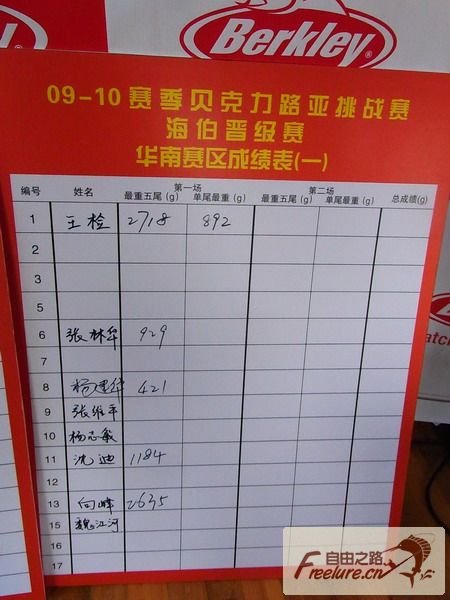 Berkley
09-10赛季贝克力路亚挑战赛
海伯晋级赛
华南赛区成绩表(一)
编号 姓名 第一场 第二场 总成绩(g)
最重五尾 (g) 单尾最重 (g) 最重五尾 (g) 单尾最重 (g)
1 王检 2718 892
2
3
5
6 张林华 929
7
8 杨建华 421
9 张维平
10 杨志敏
11 沈迪 1184
12
13 向峰 2635
15 魏江河
16
17
自由之路
Freelure.cn